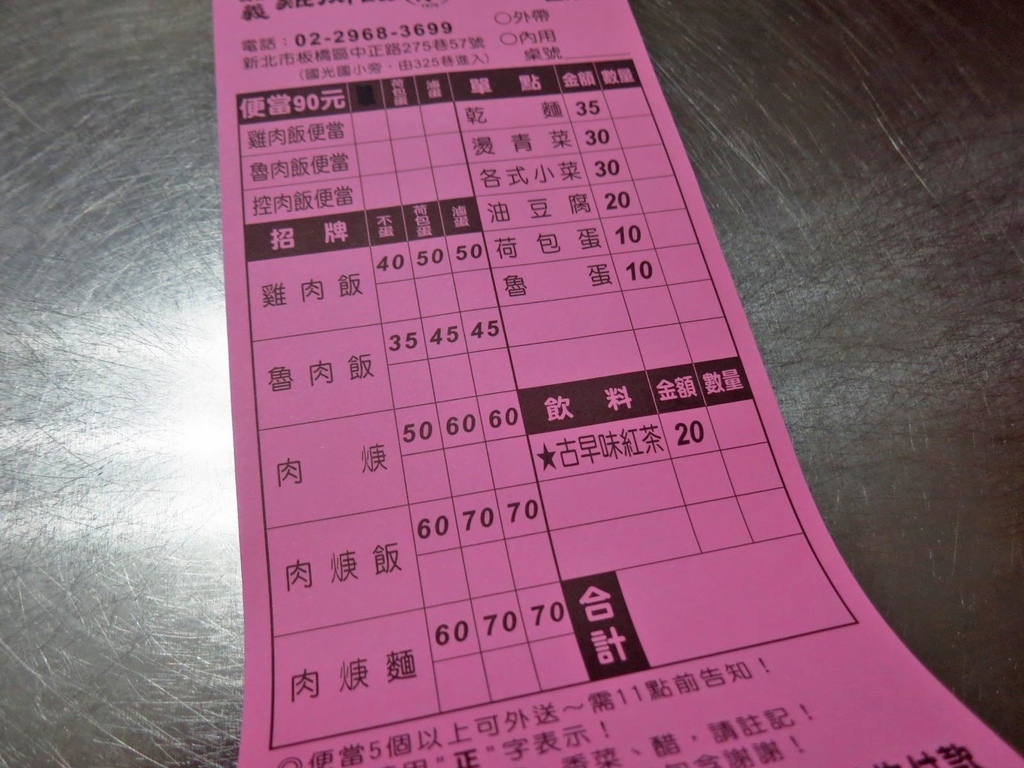 義 雞
電話：02-2968-3699
新北市板橋區中正路275巷57號
(國光國小旁，由325巷進入)
○外帶
○內用
桌號
便當90元 荷包蛋 滷蛋
雞肉飯便當
魯肉飯便當
控肉飯便當
招牌 不蛋 荷包蛋 滷蛋
雞肉飯 40 50 50
魯肉飯 35 45 45
肉焿 50 60 60
肉焿飯 60 70 70
肉焿麵 60 70 70
單點 金額 數量
乾麵 35
燙青菜 30
各式小菜 30
油豆腐 20
荷包蛋 10
魯蛋 10
飲料 金額 數量
★古早味紅茶 20
合計
◎便當5個以上可外送～需11點前告知！
用"正"字表示！
香菜、醋，請註記！
謝謝！
付款